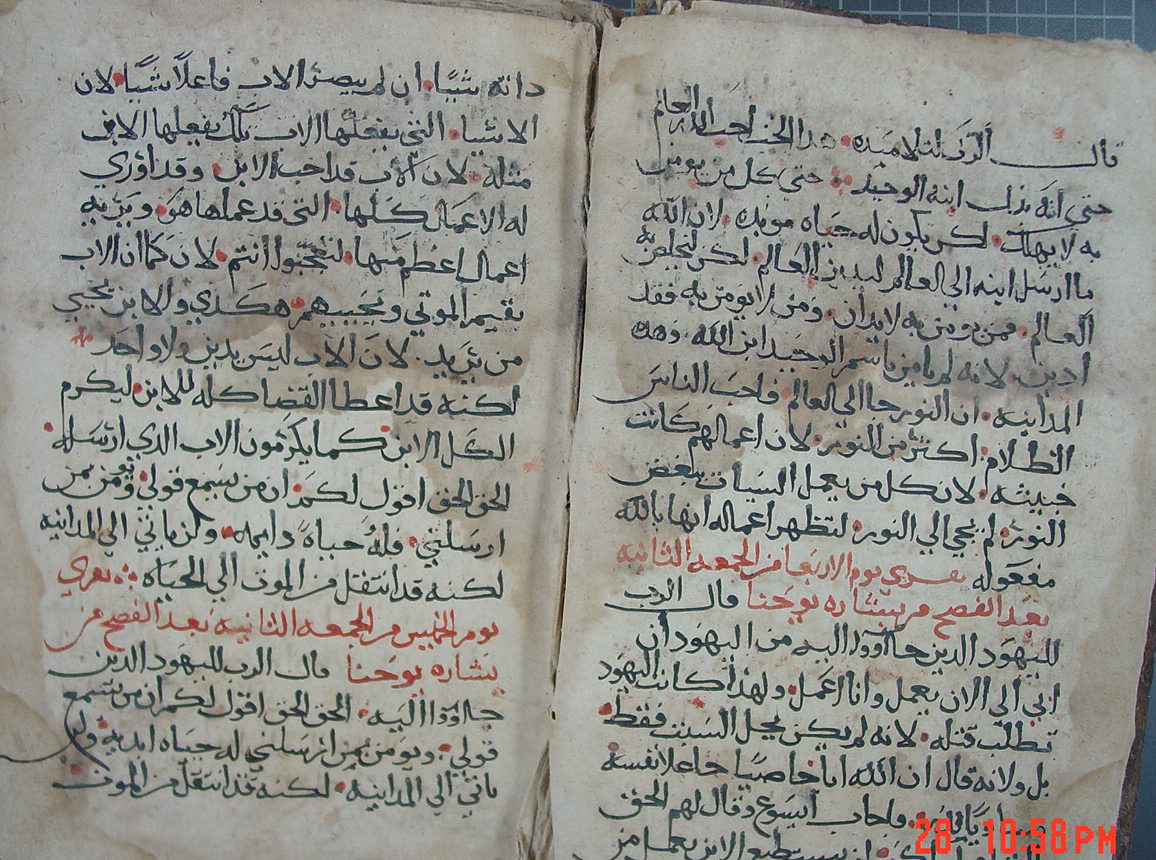 قال الرب لتلاميذه هذا الحد احب الله العالم
حتي انه بذل ابنه الوحيد حتي كل من يومن
به لا يهلك لكن يكون له حياه موبده لان الله
ما ارسل ابنه الي العالم ليدين العالم لكن ليخلص به
العالم فمن يومن به لا يدان ومن لا يومن به فقد
ادين لانه لم يامن باسم الوحيد ابن الله وهذه
المداينه ان النور جا الي العالم فاحب الناس
الظلام اكثر من النور لان اعمالهم كانت
خبيثه لان كل من يعمل السيات يبغض
النور لم يجي الي النور لتظهر اعماله انها بالله
مفعوله يقري يوم الاربعا من الجمعه الثانيه
بعد الفصح من بشاره يوحنا قال الرب
لليهود الدين جااووا اليه من اليهود ان
ابي الي الان يعمل وانا اعمل ولهذا كانت اليهود
تطلب قتله لانه لم يكن يحل السبت فقط
بل ولانه قال ان الله ابا خاصيا جاعلا نفسه
فاجاب ايسوع وقال لهم الحق
يستطيع الابن يعمل من
داته شيًا ان لم يبصر الاب فاعلاً شيًا لان
الاشيا التي يفعلها الاب تلك يفعلها الابن
مثله لان الاب قد احب الابن وقد اوري
له الاعمال كلها التي قد عملها هو ويريه
اعمال اعظم منها لتعجبوا انتم لان كما ان الاب
يقيم الموتي ويحييهم هكدي والابن يحيي
من يريد لان الاب ليس يدين ولا واحد
لكنه قد اعطا القضا كله للابن ليكرم
الكل الابن كما يكرمون الاب الدي ارسله
الحق الحق اقول لكم ان من يسمع قولي ويومن بمن
ارسلني فله حياةً دايمه ولن ياتي الي المداينه
لكنه قد انتقل من الموت الي الحياه يقري
يوم الخميس من الجمعه الثانيه بعد الفصح من
بشاره يوحنا قال الرب لليهود الدين
جااووا اليه الحق الحق اقول لكم ان من يسمع
قولي ويومن بمن ارسلني له حياه ابديه ولن
ياتي الي المداينه لكنه قد انتقل من الموت
28 10:58 PM